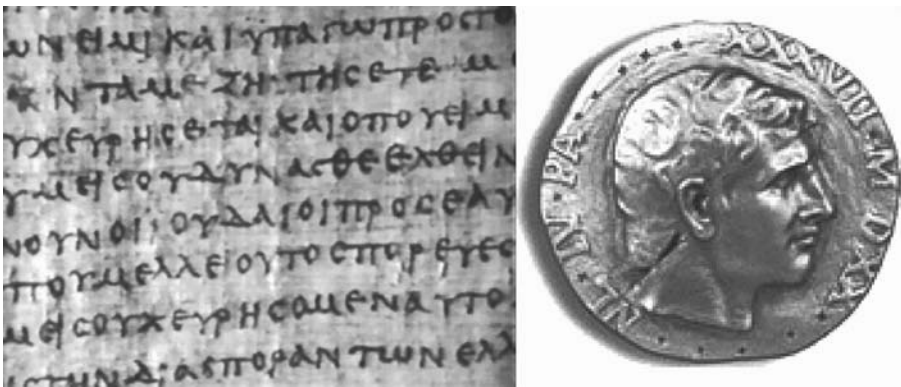 ωΝΕΙΜΙΚΑΙΥΠΑΓωΠΡΟCΤΟ
ΝΤΑΜΕΖΗΤΗCΕΤΕΜ
ΥΧΕΥΡΗCΕΤΑΙΚΑΙΟΠΟΥΕΙΜ
ΥΜΕΙCΟΥΔΥΝΑCΘΕΕΛΘΕΙΝ
ΝΟΥΝΟΙΙΟΥΔΑΙΟΙΠΡΟCΕΑΥ
ΠΟΥΜΕΛΛΕΙΟΥΤΟCΠΟΡΕΥΕC
ΜΕΙCΟΥΧΕΥΡΗCΟΜΕΝΑΥΤΟ
CΤΗΝΔΙΑCΠΟΡΑΝΤωΝΕΛΛ
LV · PA XXXVIII · M DXX